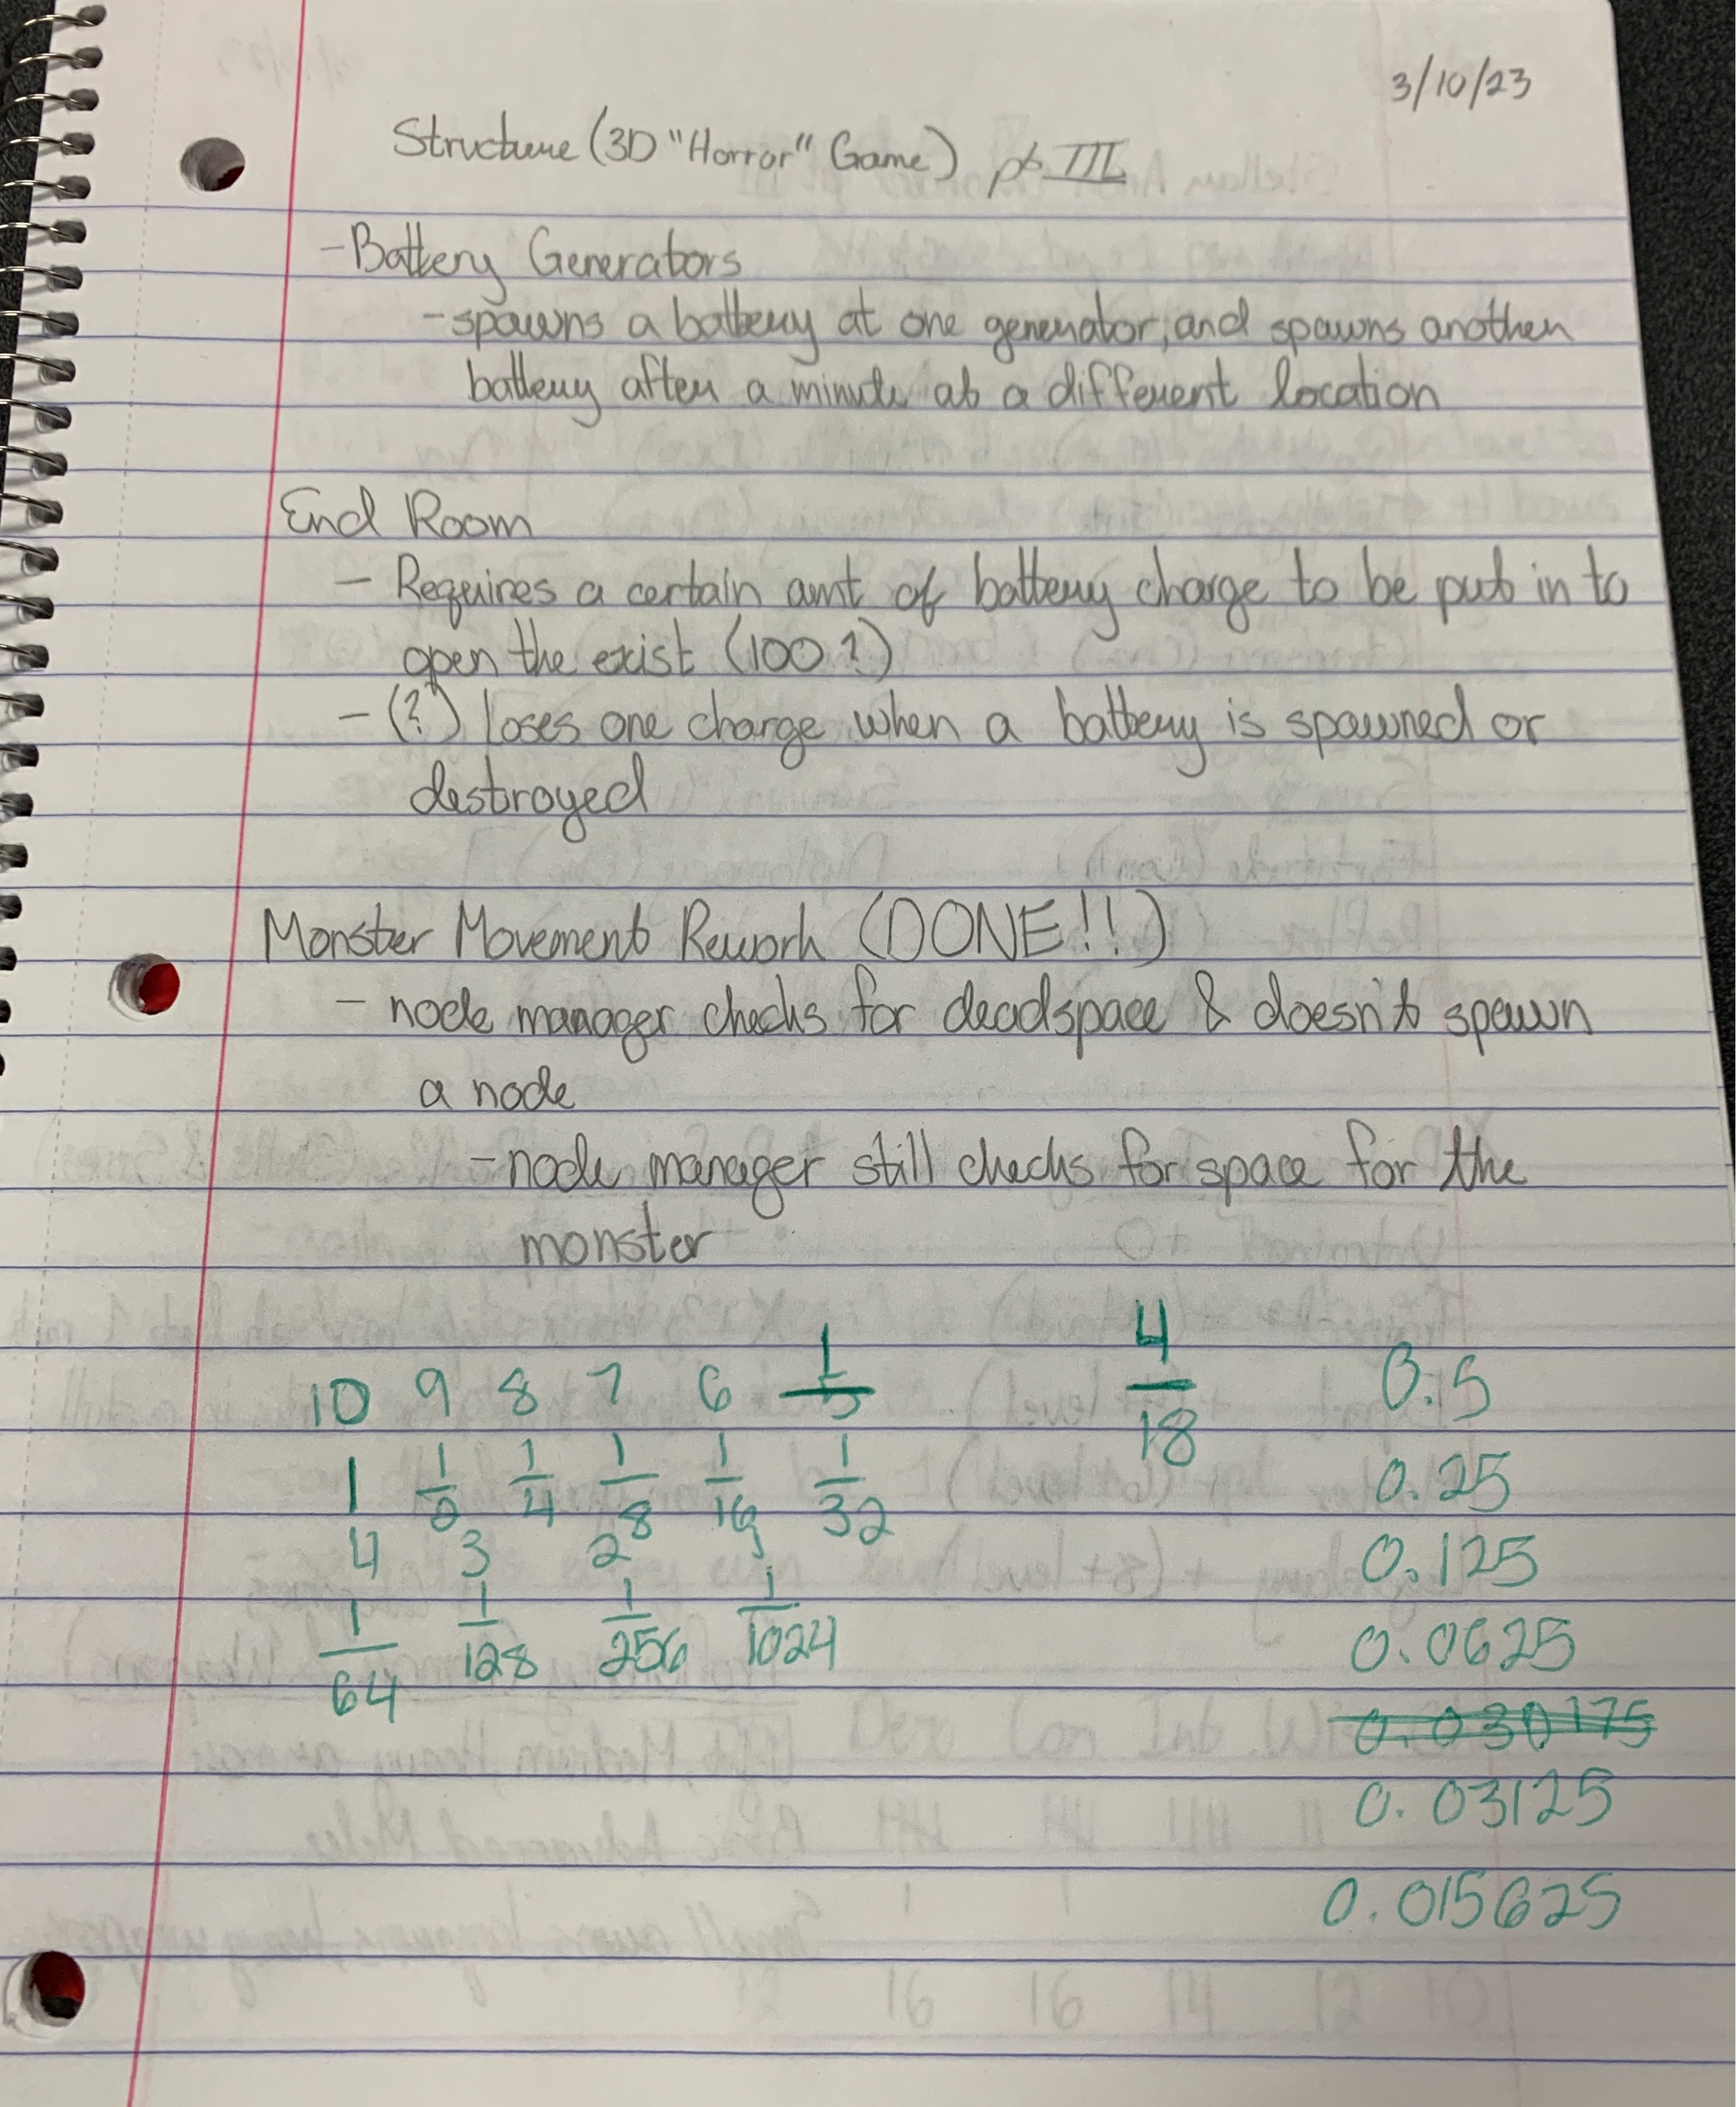 3/10/23
Structure (3D "Horror" Game) pt III
- Battery Generators
- spawns a battery at one generator, and spawns another
battery after a minute at a different location
End Room
- Requires a certain amt of battery charge to be put in to
open the exist (100?)
- (?) loses one charge when a battery is spawned or
destroyed
Monster Movement Rework (DONE!!)
- node manager checks for deadspace & doesn't spawn
a node
- node manager still checks for space for the
monster
10 9 8 7 6 5 4/18 0.5
1 1/2 1/4 1/8 1/16 1/32 0.25
4 3 2 0.125
1/64 1/128 1/256 1/1024 0.0625
0.030175
0.03125
0.015625